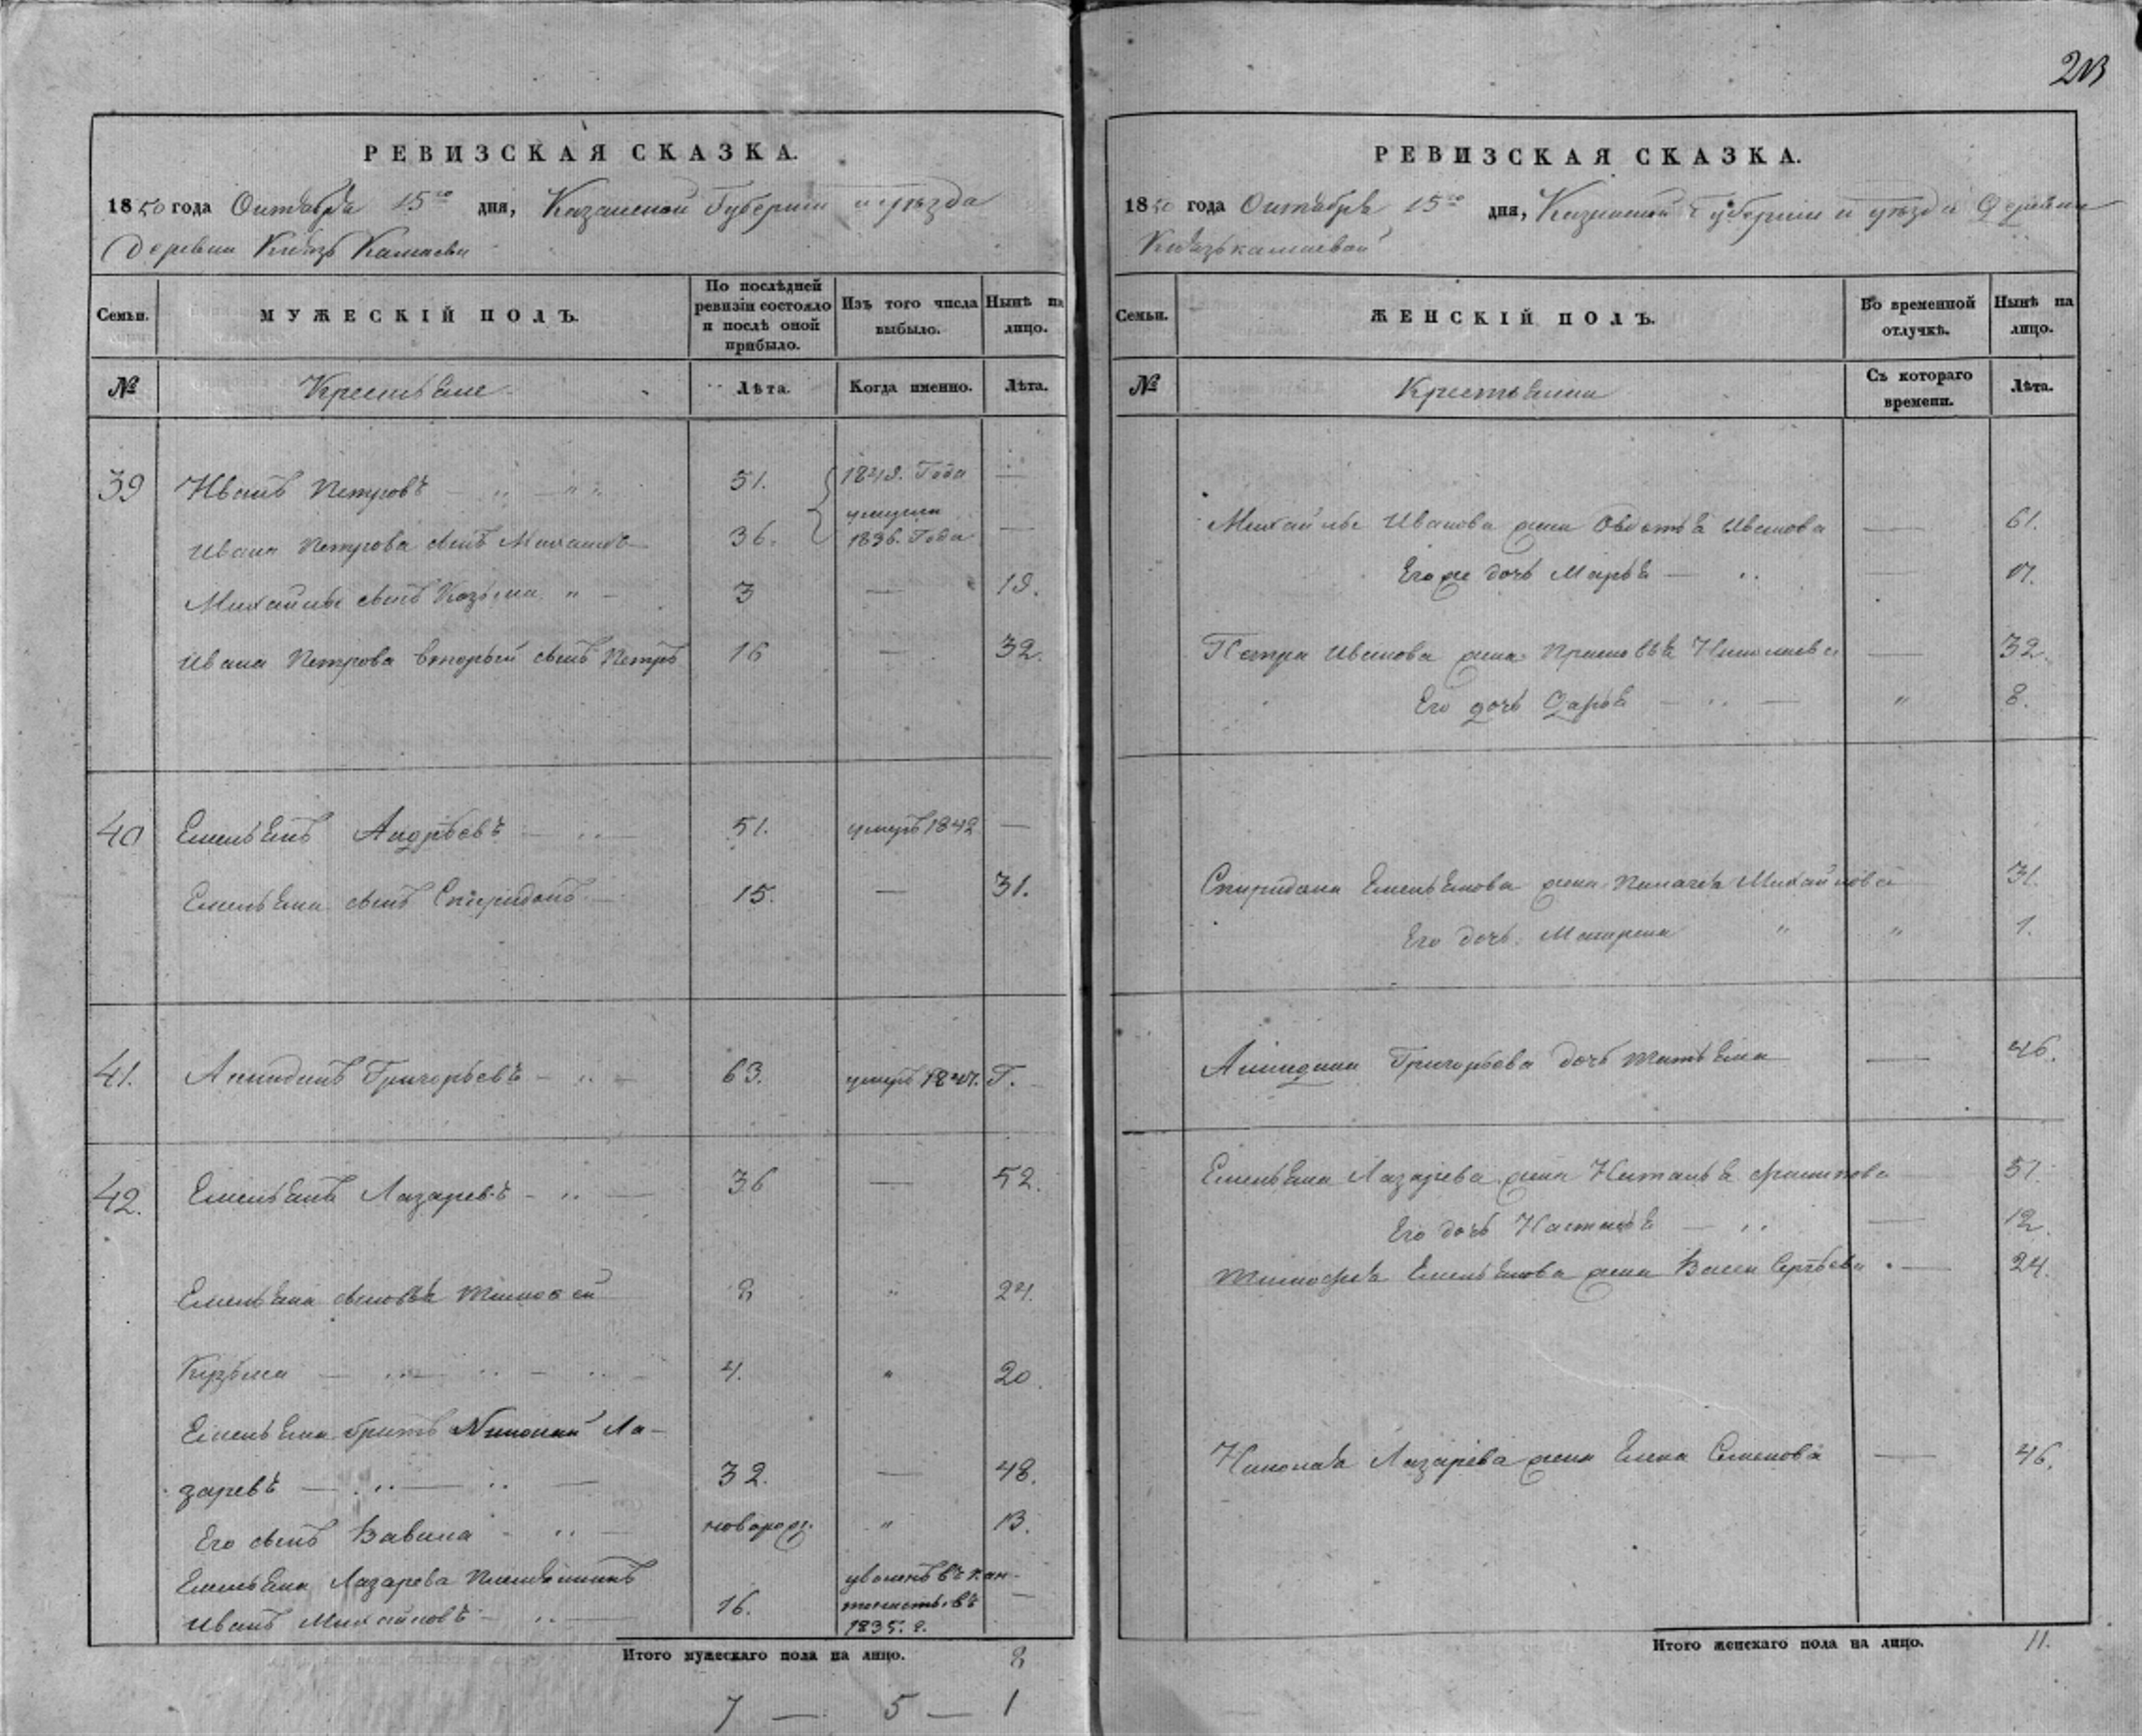 213
РЕВИЗСКАЯ СКАЗКА.
1850 года Октября 15го дня, Казанской Губернии и уезда
Деревни Князь Камаевы
Семьи.
МУЖЕСКІЙ ПОЛЪ.
По послѣдней ревизіи состояло и послѣ оной прибыло.
Изъ того числа выбыло.
Нынѣ на лицо.
№
Крестьяне
Лѣта.
Когда именно.
Лѣта.
39
Иванъ Петровъ
51.
1848. Года
Ивана Петрова сынъ Михаила
36.
умерли
1836. Года
Михайлы сынъ Козьма
3
19.
Ивана Петрова вторый сынъ Петръ
16
32.
40
Емельянъ Андрѣевъ
51.
умеръ 1842
Емельяна сынъ Спиридонъ
15.
31.
41.
Григорьевъ
63.
умеръ 1847. Г.
42.
Емельянъ Лазаревъ
36
52.
Емельяна сыновья Тимофей
8
24.
Кузьма
4.
20.
Емельяна братъ Николай Ла-
заревъ
32.
48.
Его сынъ Вавила
новорож.
13.
Емельяна Лазарева племянникъ
Иванъ Михайловъ
16.
уволенъ въ кан-
тонисты въ
1835. г.
Итого мужескаго пола на лицо.
8
7 — 5 — 1
РЕВИЗСКАЯ СКАЗКА.
1850 года Октября 15го дня, Казанской Губернии и уезда Деревни
Князькамаевой
Семьи.
ЖЕНСКІЙ ПОЛЪ.
Во временной отлучкѣ.
Нынѣ на лицо.
№
Крестьянки
Съ котораго времени.
Лѣта.
Михайлы Иванова жена Овдотья Иванова
61.
Его же дочь Марья
17.
Петра Иванова жена Прасковья Николаева
32.
Его дочь Дарья
8.
Спиридона Емельянова жена Палагея Михайлова
31.
Его дочь Матрена
1.
Григорьева дочь Татьяна
46.
Емельяна Лазарева жена Наталья
51.
Его дочь Настасья
12.
Тимофея Емельянова жена Васса Сергѣева
24.
Николая Лазарева жена Елена Семенова
46.
Итого женскаго пола на лицо.
11.